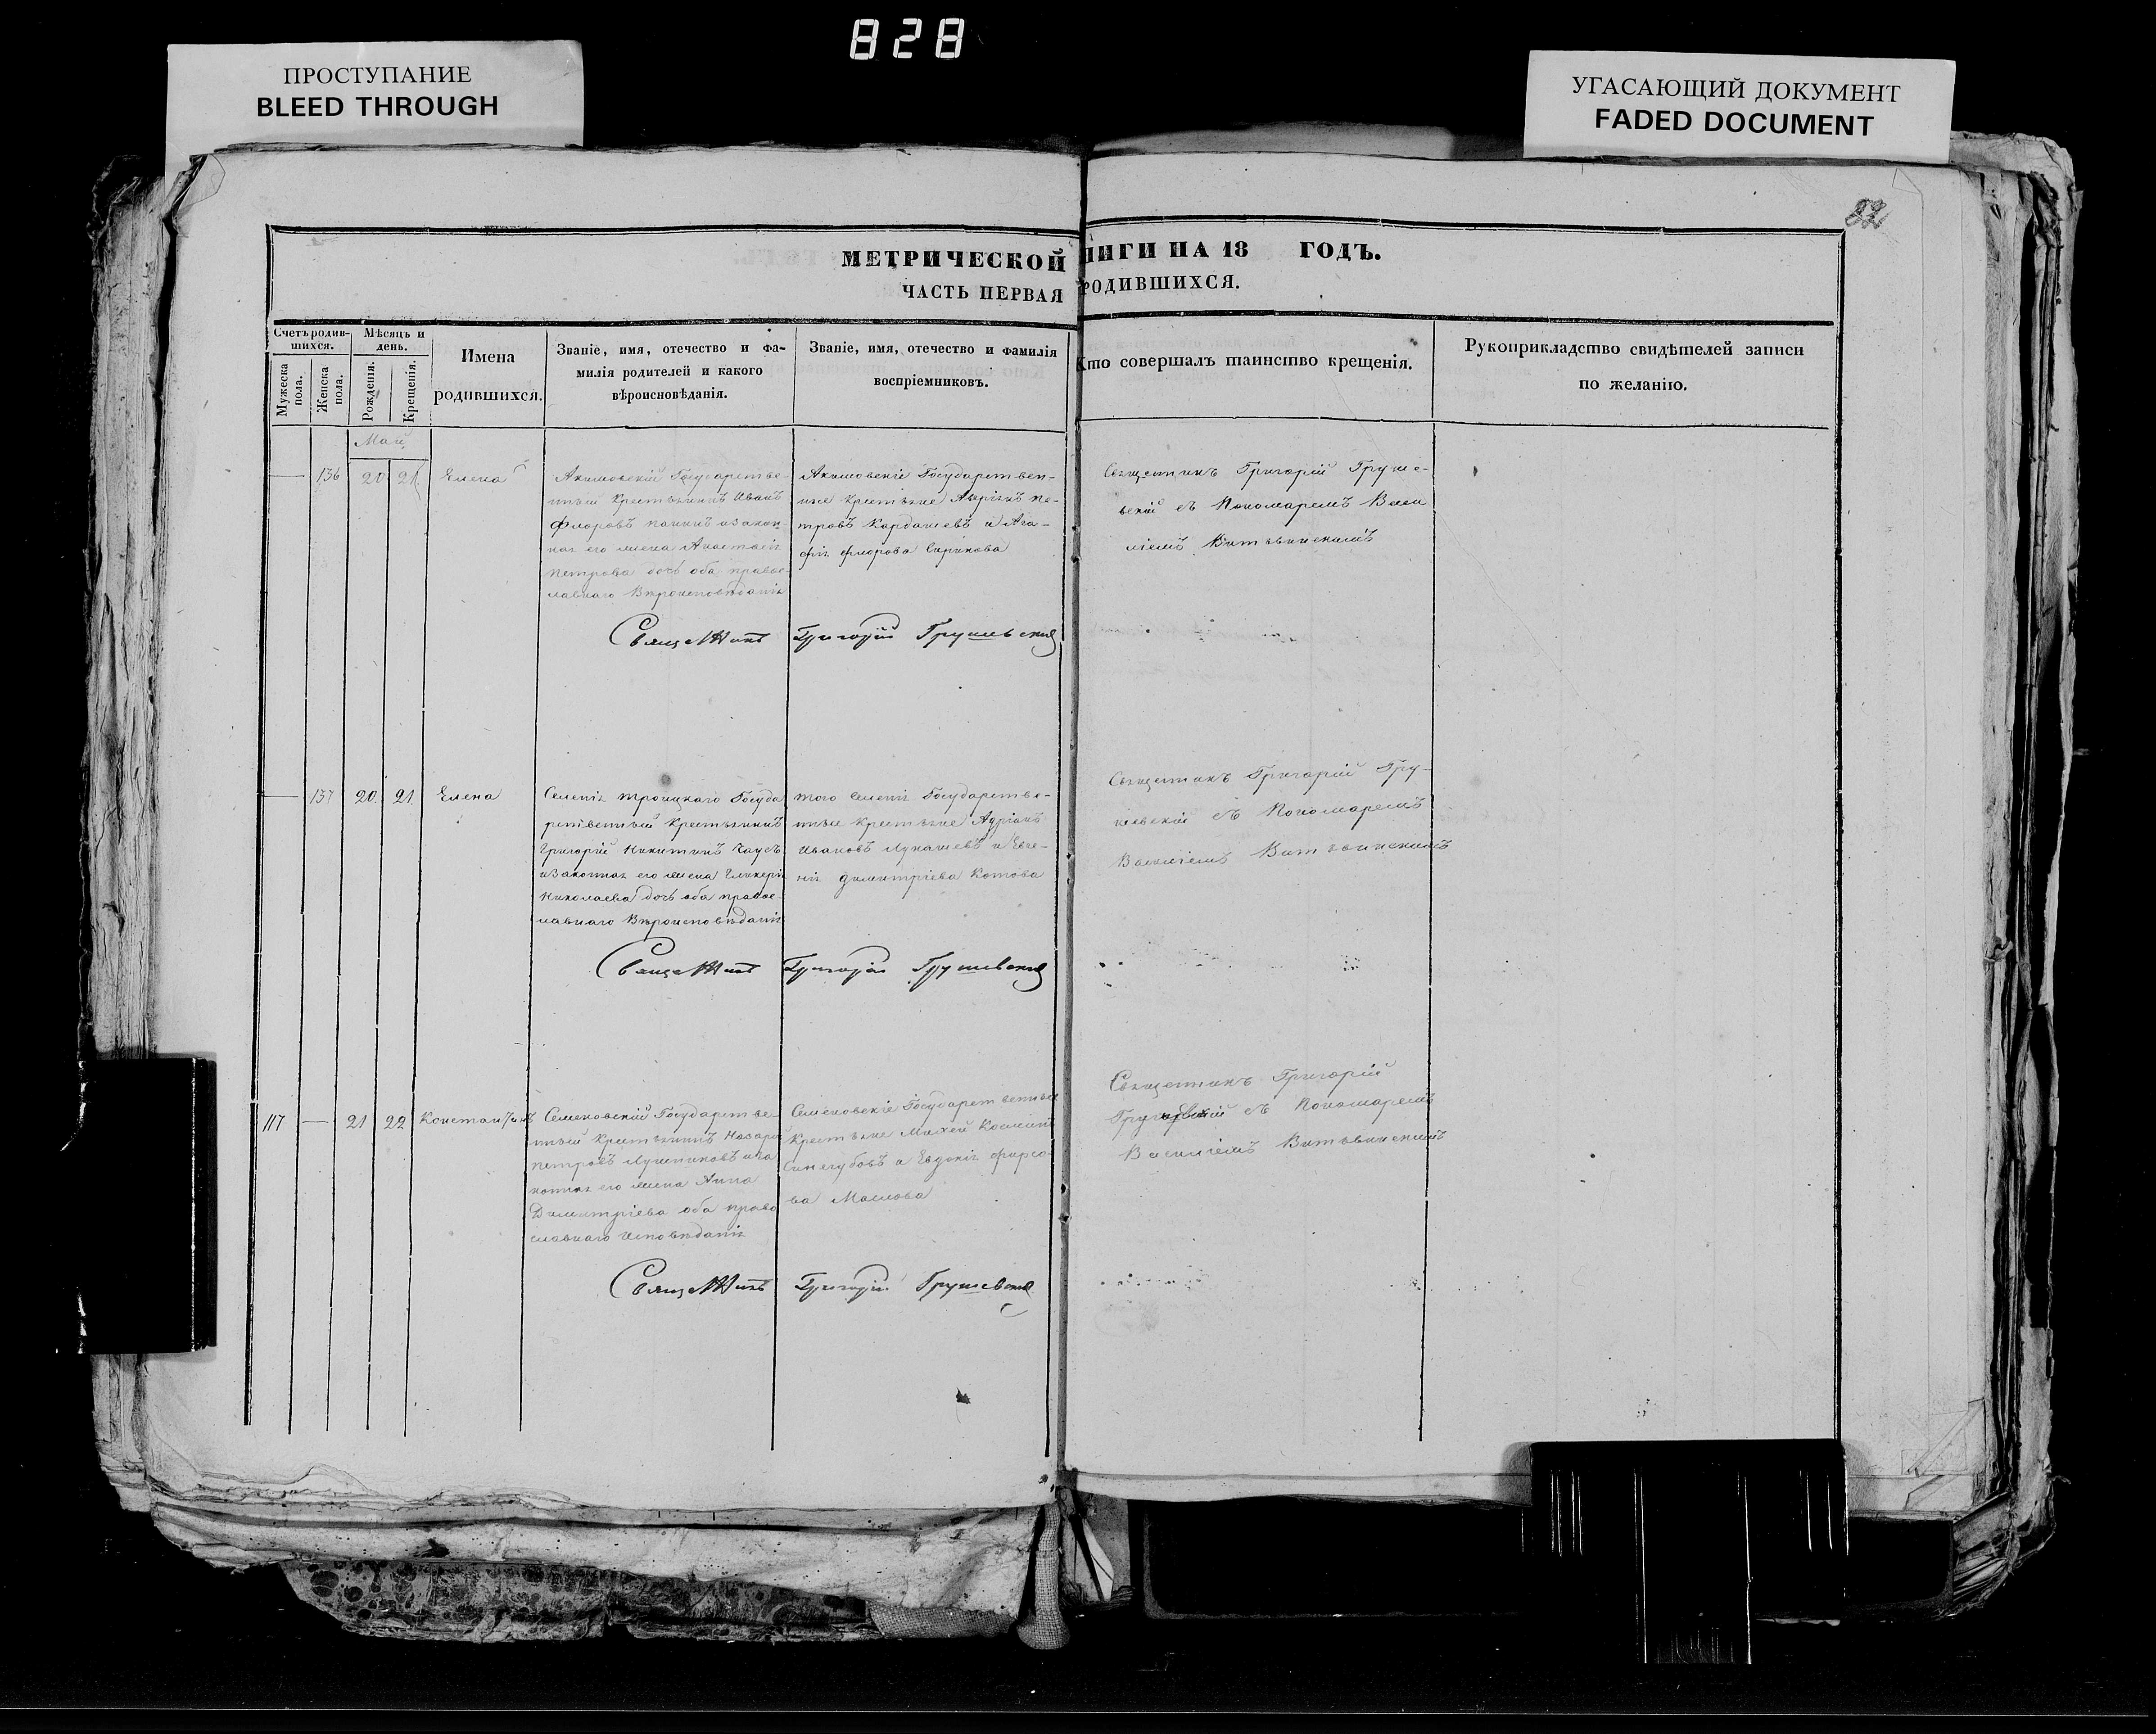 828
ПРОСТУПАНИЕ
BLEED THROUGH
УГАСАЮЩИЙ ДОКУМЕНТ
FADED DOCUMENT
82
МЕТРИЧЕСКОЙ НИГИ НА 18 ГОДЪ.
ЧАСТЬ ПЕРВАЯ РОДИВШИХСЯ.
Счетъ родив-
шихся.
Мужеска
пола.
Женска
пола.
Мѣсяцъ и
день.
Рожденія.
Крещенія.
Имена
родившихся.
Званіе, имя, отечество и фа-
милія родителей и какого
вѣроисновѣданія.
Званіе, имя, отечество и фамилія
воспріемниковъ.
Кто совершалъ таинство крещенія.
Рукоприкладство свидѣтелей записи
по желанію.
Май
136 20 21 Елена
Акимовскій Государстве-
нный Крестьянинъ Иванъ
Флоровъ и закон
ная его жена Анастасія
Петрова дочь оба правос
лавнаго Вѣроисповѣданія
Акимовскіе Государствен-
ные Крестьяне Пе-
тровъ Кардашевъ и Ага-
фія Флорова
Священникъ Григорій Груше-
вскій съ Пономаремъ Васи
ліемъ
Священникъ Григорій Грушевскій
137 20 21 Елена
Селенія Троицкаго Госуда
рственный Крестьянинъ
Григорій Никитинъ Чаусъ
и законная его жена Гликерія
Николаева дочь оба правос
лавнаго Вѣроисповѣданія
того Селенія Государстве-
нные Крестьяне Адріанъ
Ивановъ Лукашевъ и Евге-
нія Димитріева Котова
Священникъ Григорій Гру-
шевскій съ Пономаремъ
Василіемъ
Священникъ Григорій Грушевскій
117 21 22 Константинъ
Семеновскій Государстве-
нный Крестьянинъ Назарій
Петровъ и за
конная его жена Анна
Димитріева оба право
славнаго Исповѣданія
Семеновскіе Государственные
Крестьяне Михей
Синегубовъ и Евдокія Фирсо
ва Маслова
Священникъ Григорій
Грушевскій съ Пономаремъ
Василіемъ
Священникъ Григорій Грушевскій